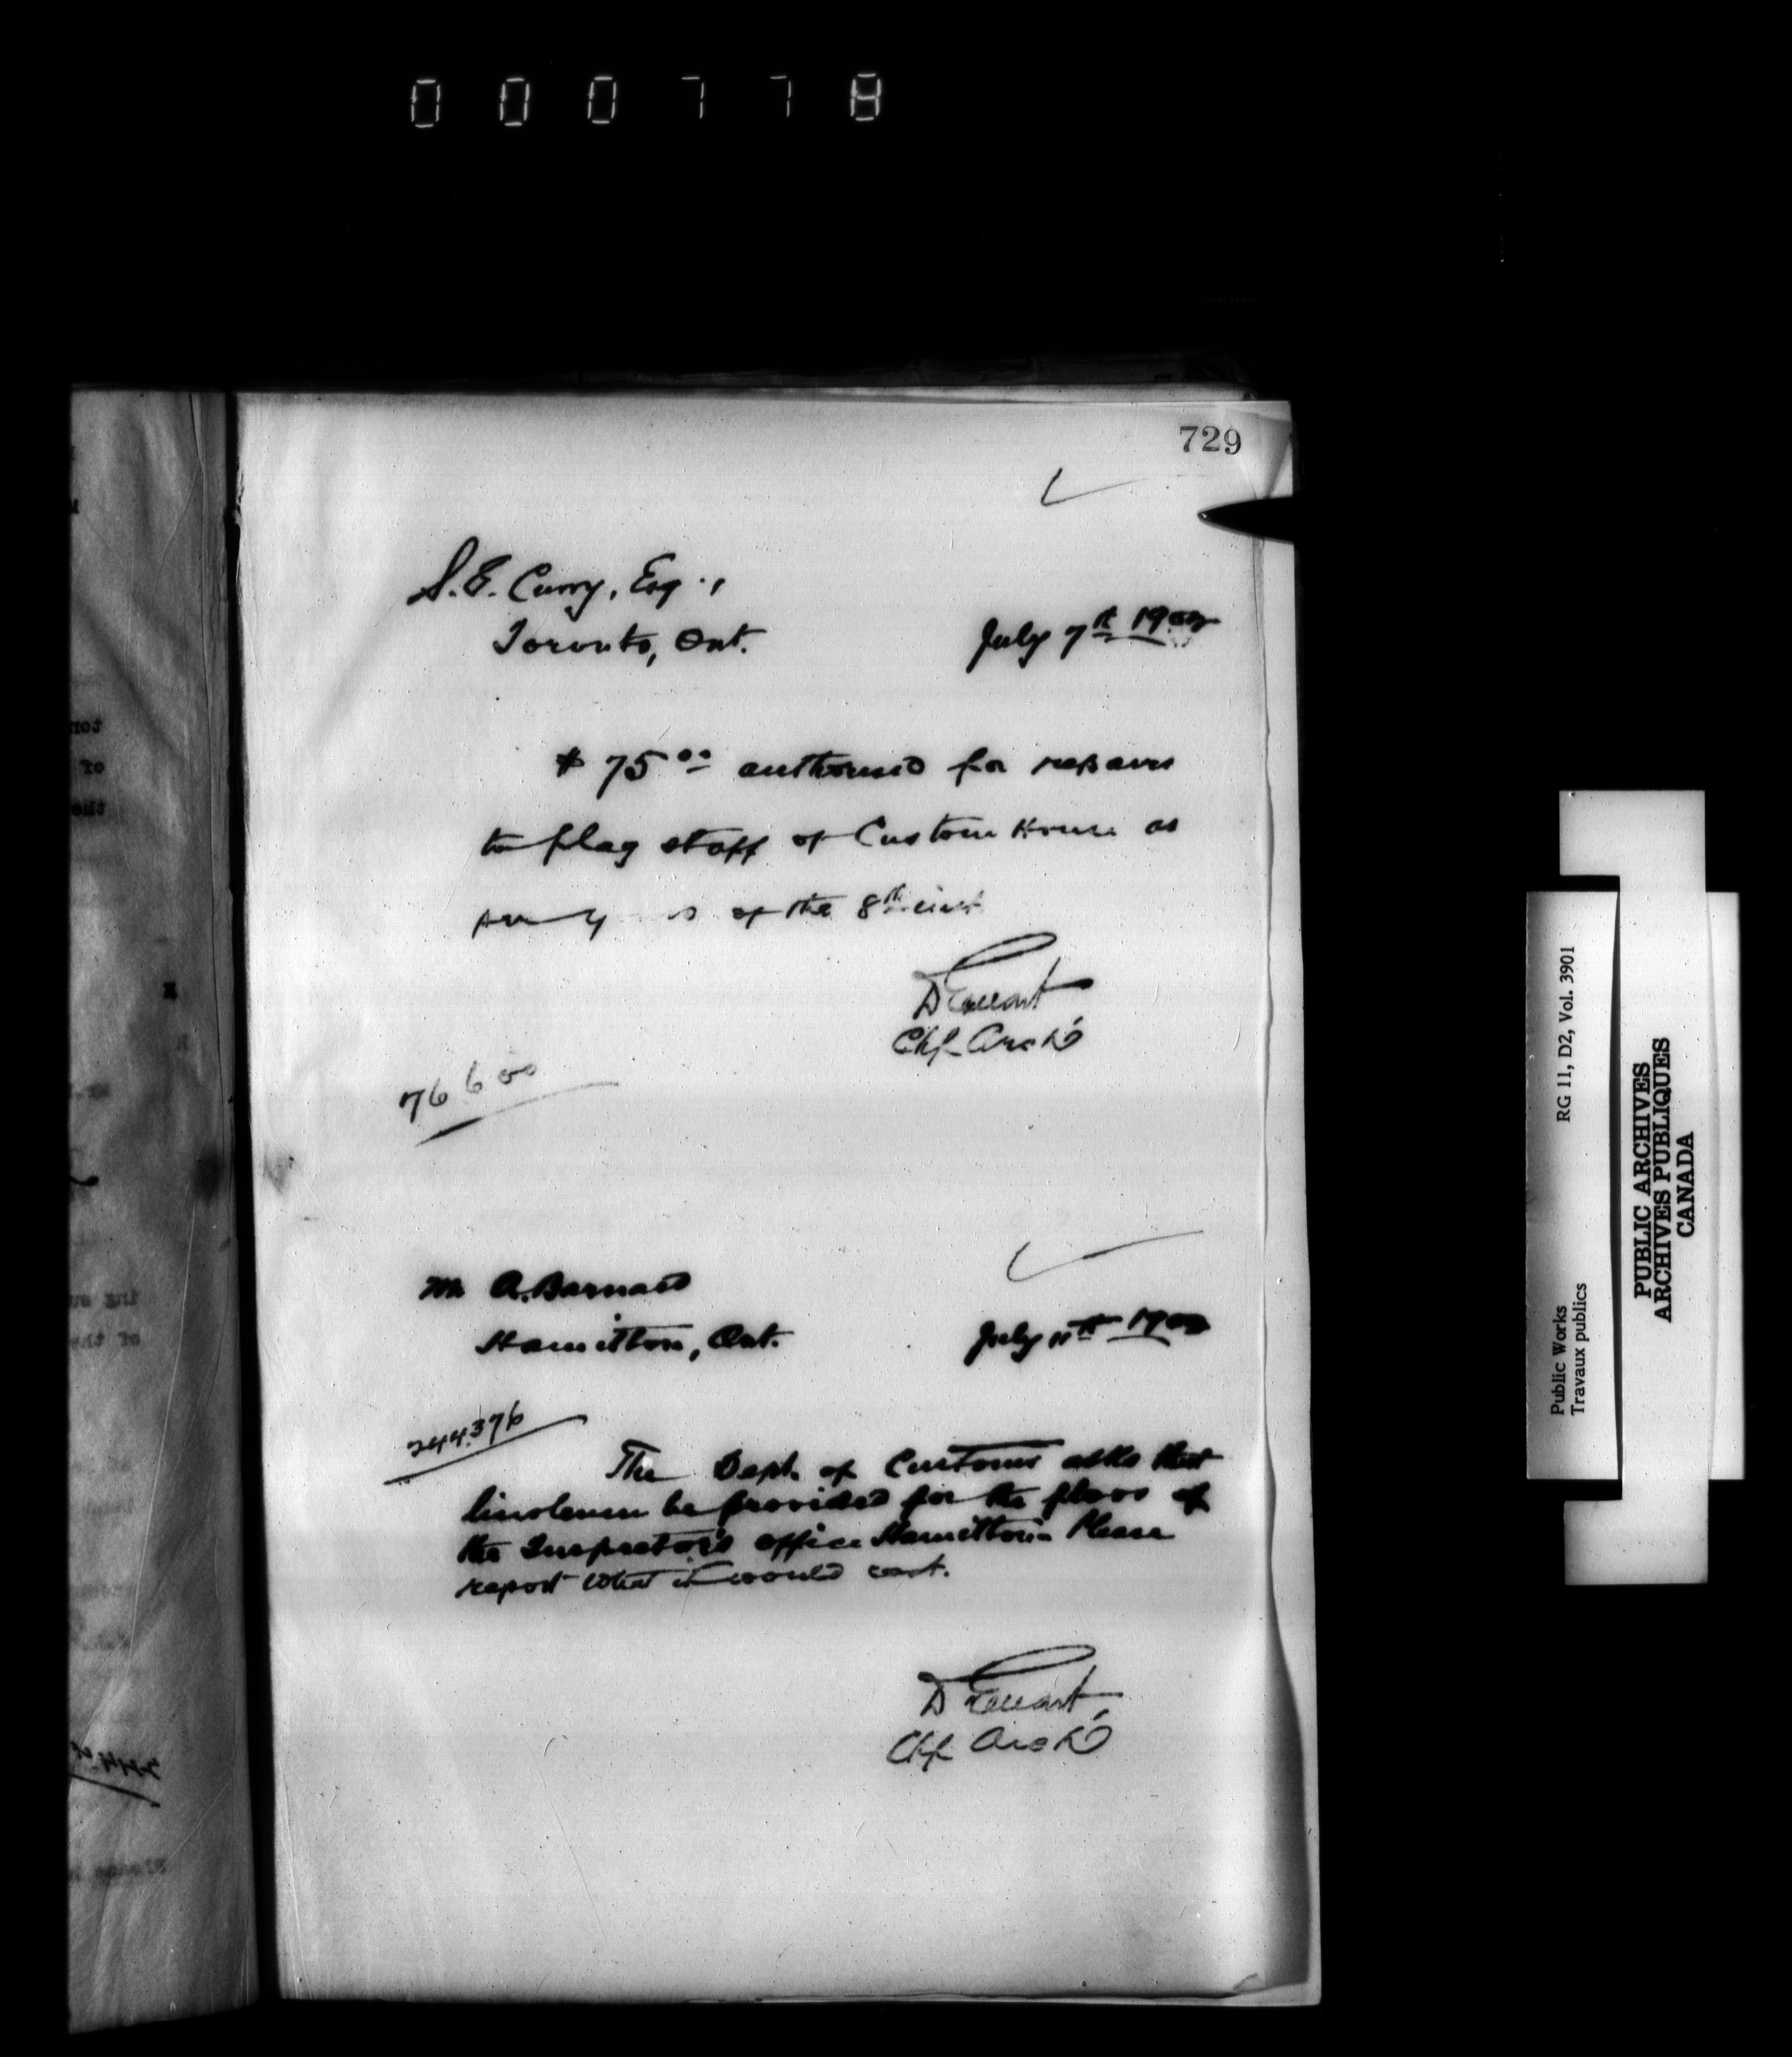 000778
729
S. G. Curry, Esq.,
Toronto, Ont.
July 7th 1902
$75.00 authorised for repairs
to flag staff of Custom House as
of the 8th inst
D Ewart
Chf. Archt
76600
Mr A. Barnard
Hamilton, Ont.
July 11th 1902
244376
The Dept. of Customs asks that
linoleum be provided for the floor of
the Inspector's office Hamilton. Please
report what it would cost.
D Ewart,
Chf. Archt
RG 11, D2, Vol. 3901
Public Works
Travaux publics
PUBLIC ARCHIVES
ARCHIVES PUBLIQUES
CANADA